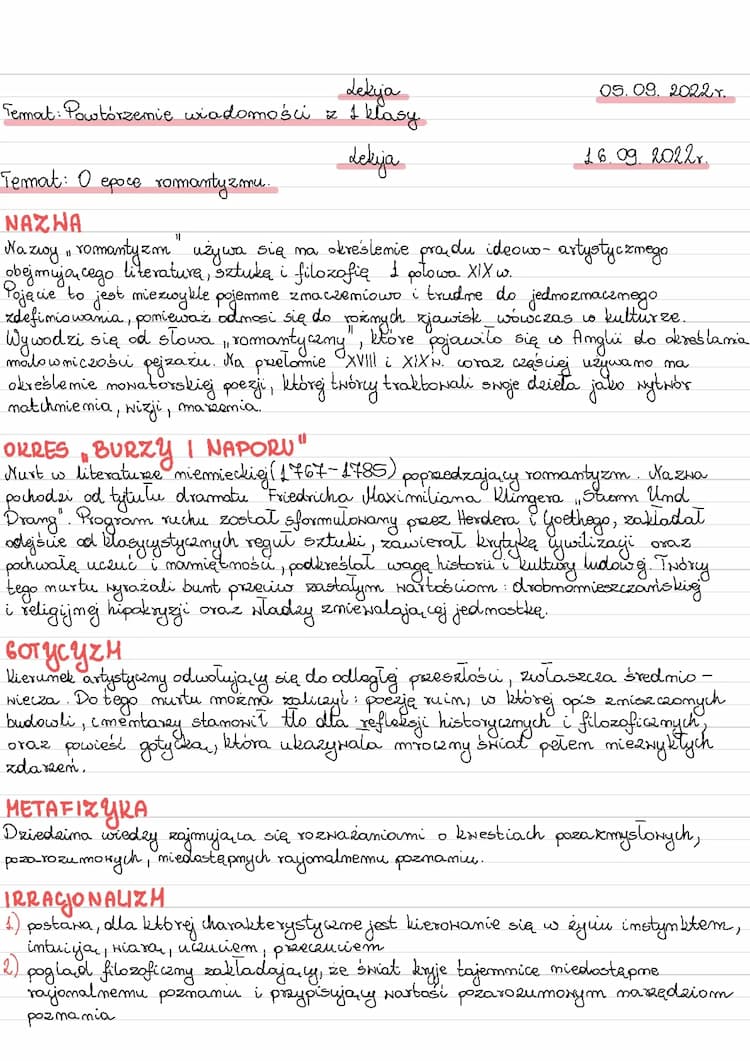 Lekcja 05.09.2022r.
Temat: Powtórzenie wiadomości z 1 klasy
Lekcja 16.09.2022r.
Temat: O epoce romantyzmu.
NAZWA
Nazwy „romantyzm" używa się na określenie prądu ideowo-artystycznego
obejmującego literaturę, sztukę i filozofię 1 połowa XIX w.
Pojęcie to jest niezwykle pojemne znaczeniowo i trudne do jednoznacznego
zdefiniowania, ponieważ odnosi się do różnych zjawisk wówczas w kulturze.
Wywodzi się od słowa „romantyczny", które pojawiło się w Anglii do określania
malowniczości pejzażu. Na przełomie XVIII i XIX w. coraz częściej używano na
określenie nowatorskiej poezji, której twórcy traktowali swoje dzieła jako wytwór
natchnienia, wizji, marzenia.
OKRES „BURZY I NAPORU"
Nurt w literaturze niemieckiej (1767-1785) poprzedzający romantyzm. Nazwa
pochodzi od tytułu dramatu Friedricha Maximiliana Klingera „Sturm Und
Drang". Program ruchu został sformułowany przez Herdera i Goethego, zakładał
odejście od klasycystycznych reguł sztuki, zawierał krytykę cywilizacji oraz
pochwałę uczuć i namiętności, podkreślał wagę historii i kultury ludowej. Twórcy
tego nurtu wyrażali bunt przeciw zastałym wartościom: drobnomieszczańskiej
i religijnej hipokryzji oraz władzy zniewalającej jednostkę.
GOTYCYZM
Kierunek artystyczny odwołujący się do odległej przeszłości, zwłaszcza średnio-
wiecza. Do tego nurtu można zaliczyć: poezję ruin, w której opis zniszczonych
budowli, cmentarzy stanowił tło dla refleksji historycznych i filozoficznych,
oraz powieść gotycką, która ukazywała mroczny świat pełen niezwykłych
zdarzeń.
METAFIZYKA
Dziedzina wiedzy zajmująca się rozważaniami o kwestiach pozazmysłowych,
pozarozumowych, niedostępnych racjonalnemu poznaniu.
IRRACJONALIZM
1) postawa, dla której charakterystyczne jest kierowanie się w życiu instynktem,
intuicją, wiarą, uczuciem, przeczuciem
2) pogląd filozoficzny zakładający, że świat kryje tajemnice niedostępne
racjonalnemu poznaniu i przypisujący wartość pozarozumowym narzędziom
poznania